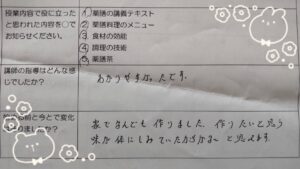 授業内容で役に立った
と思われた内容を○で
お知らせください。
① 薬膳の講義テキスト
② 薬膳料理のメニュー
③ 食材の効能
④ 調理の技術
⑤ 薬膳茶
講師の指導はどんな感
じでしたか？
わかりやすかったです。
前と今とで変化
ましたか？
家でなんども作りました。作りたいと思う
味が体にしみていたからかな〜と思えます。